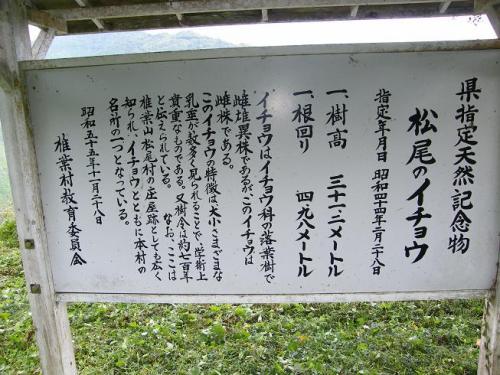 県指定天然記念物
松尾のイチョウ
指定年月日 昭和四十四年二月二十八日
一、樹高 三十二メートル
一、根回り 四.九八メートル
イチョウはイチョウ科の落葉樹で
雌雄異株であるが、このイチョウは
雌株である。
このイチョウの特徴は大小さまざまな
乳垂が数多く見られることで、学術上
貴重なものである。又樹令は約七百年
と伝えられている。 なお、ここは
椎葉山松尾村の庄屋跡としても広く
知られ、イチョウとともに本村の
名所の一つとなっている。
昭和五十五年十一月二十八日
椎葉村教育委員会